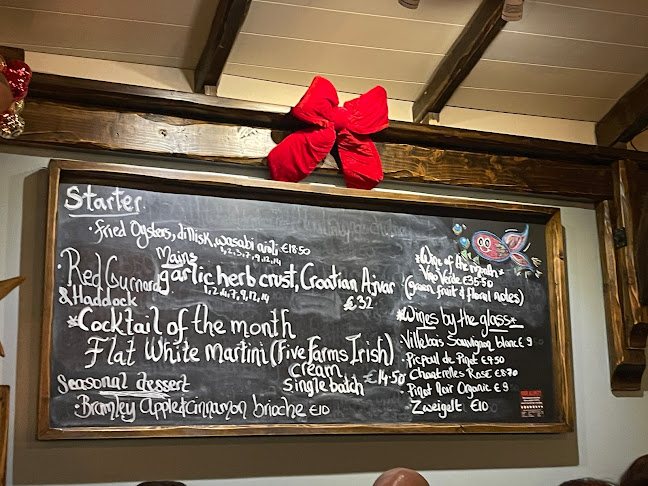 Starter.
· Fried Oysters, dillisk, wasabi aioli €18.50
1, 2, 3, 7, 9, 12, 14
Mains
· Red Gurnard garlic herb crust, Croatian Ajvar
& Haddock 1, 2, 4, 7, 9, 12, 14 €32
*Cocktail of the month
Flat White martini (Five Farms Irish)
cream
single batch €14.50
Seasonal dessert
· Bramley Apple & Cinnamon brioche €10
*Wine of the month*
Vino Verde €35.50
(green fruit & floral notes)
*Wines by the glass*
· Villebois Sauvignon blanc € 9
· Picpoul de Pinet €9.50
· Chantrelles Rosé €8.70
· Pinot Noir Organic € 9
· Zweigelt €10